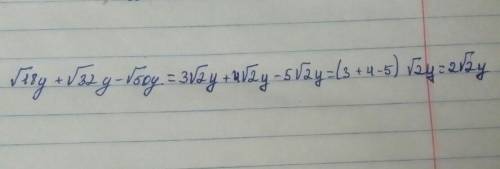 √18y + √32y - √50y = 3√2y + 4√2y - 5√2y = (3 + 4 - 5) √2y = 2√2y